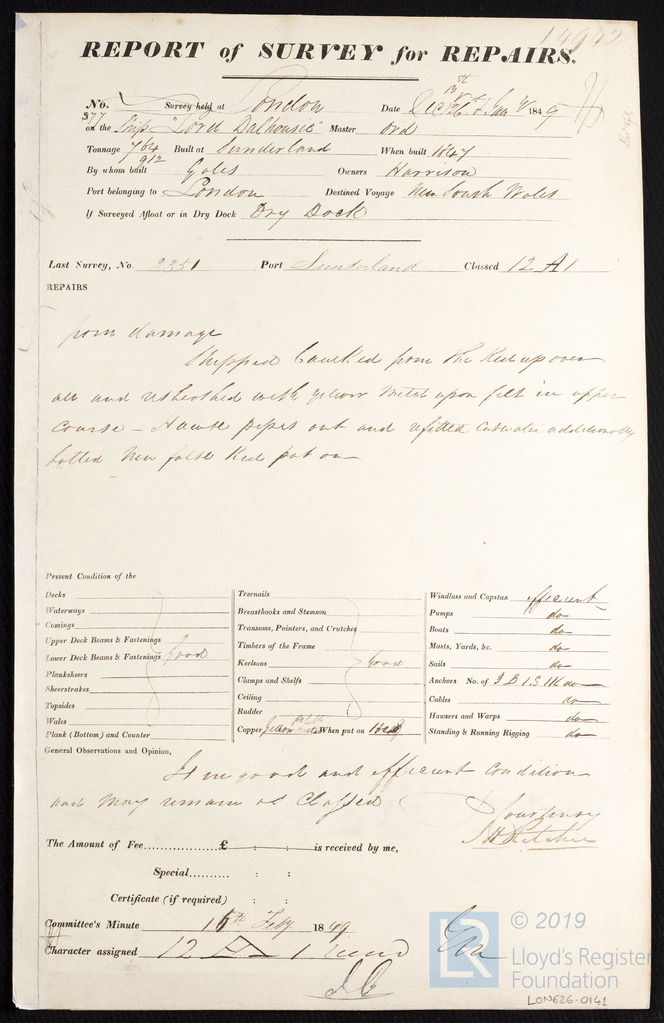 REPORT of SURVEY for REPAIRS.
No. Survey held at London Date Dec 1849
377
on the Ship "Lord Dalhousie" Master Ord
Tonnage 764 Built at Sunderland When built 1847
912
By whom built Owners Harrison
Port belonging to London Destined Voyage New South Wales
If Surveyed Afloat or in Dry Dock Dry Dock
Last Survey, No. 2351 Port Sunderland Classed 12 A1
REPAIRS
from damage
Stripped Caulked from the Keel up over
all and resheathed with yellow metal upon felt in upper
course – Hawse pipes out and refitted Cutwater additionally
bolted New false Keel put on
Present Condition of the
Decks
Waterways
Comings
Upper Deck Beams & Fastenings
Lower Deck Beams & Fastenings Good
Planksheers
Sheerstrakes
Topsides
Wales
Plank (Bottom) and Counter
Treenails
Breasthooks and Stemson
Transoms, Pointers, and Crutches
Timbers of the Frame
Keelsons Good
Clamps and Shelfs
Ceiling
Rudder
Copper Yellow Metal When put on
Windlass and Capstan efficient
Pumps do
Boats do
Masts, Yards, &c. do
Sails do
Anchors No. of 3 B 1 S 1 K do
Cables do
Hawsers and Warps do
Standing & Running Rigging do
General Observations and Opinion,
Is in good and efficient condition
and may remain as Classed
J Courtenay
J H Ritchie
The Amount of Fee £ : : is received by me,
Special : :
Certificate (if required) : :
Committee's Minute 16th Feby 1849
Character assigned 12 A 1
© 2019
LR
Lloyd's Register
Foundation
LON626-0141